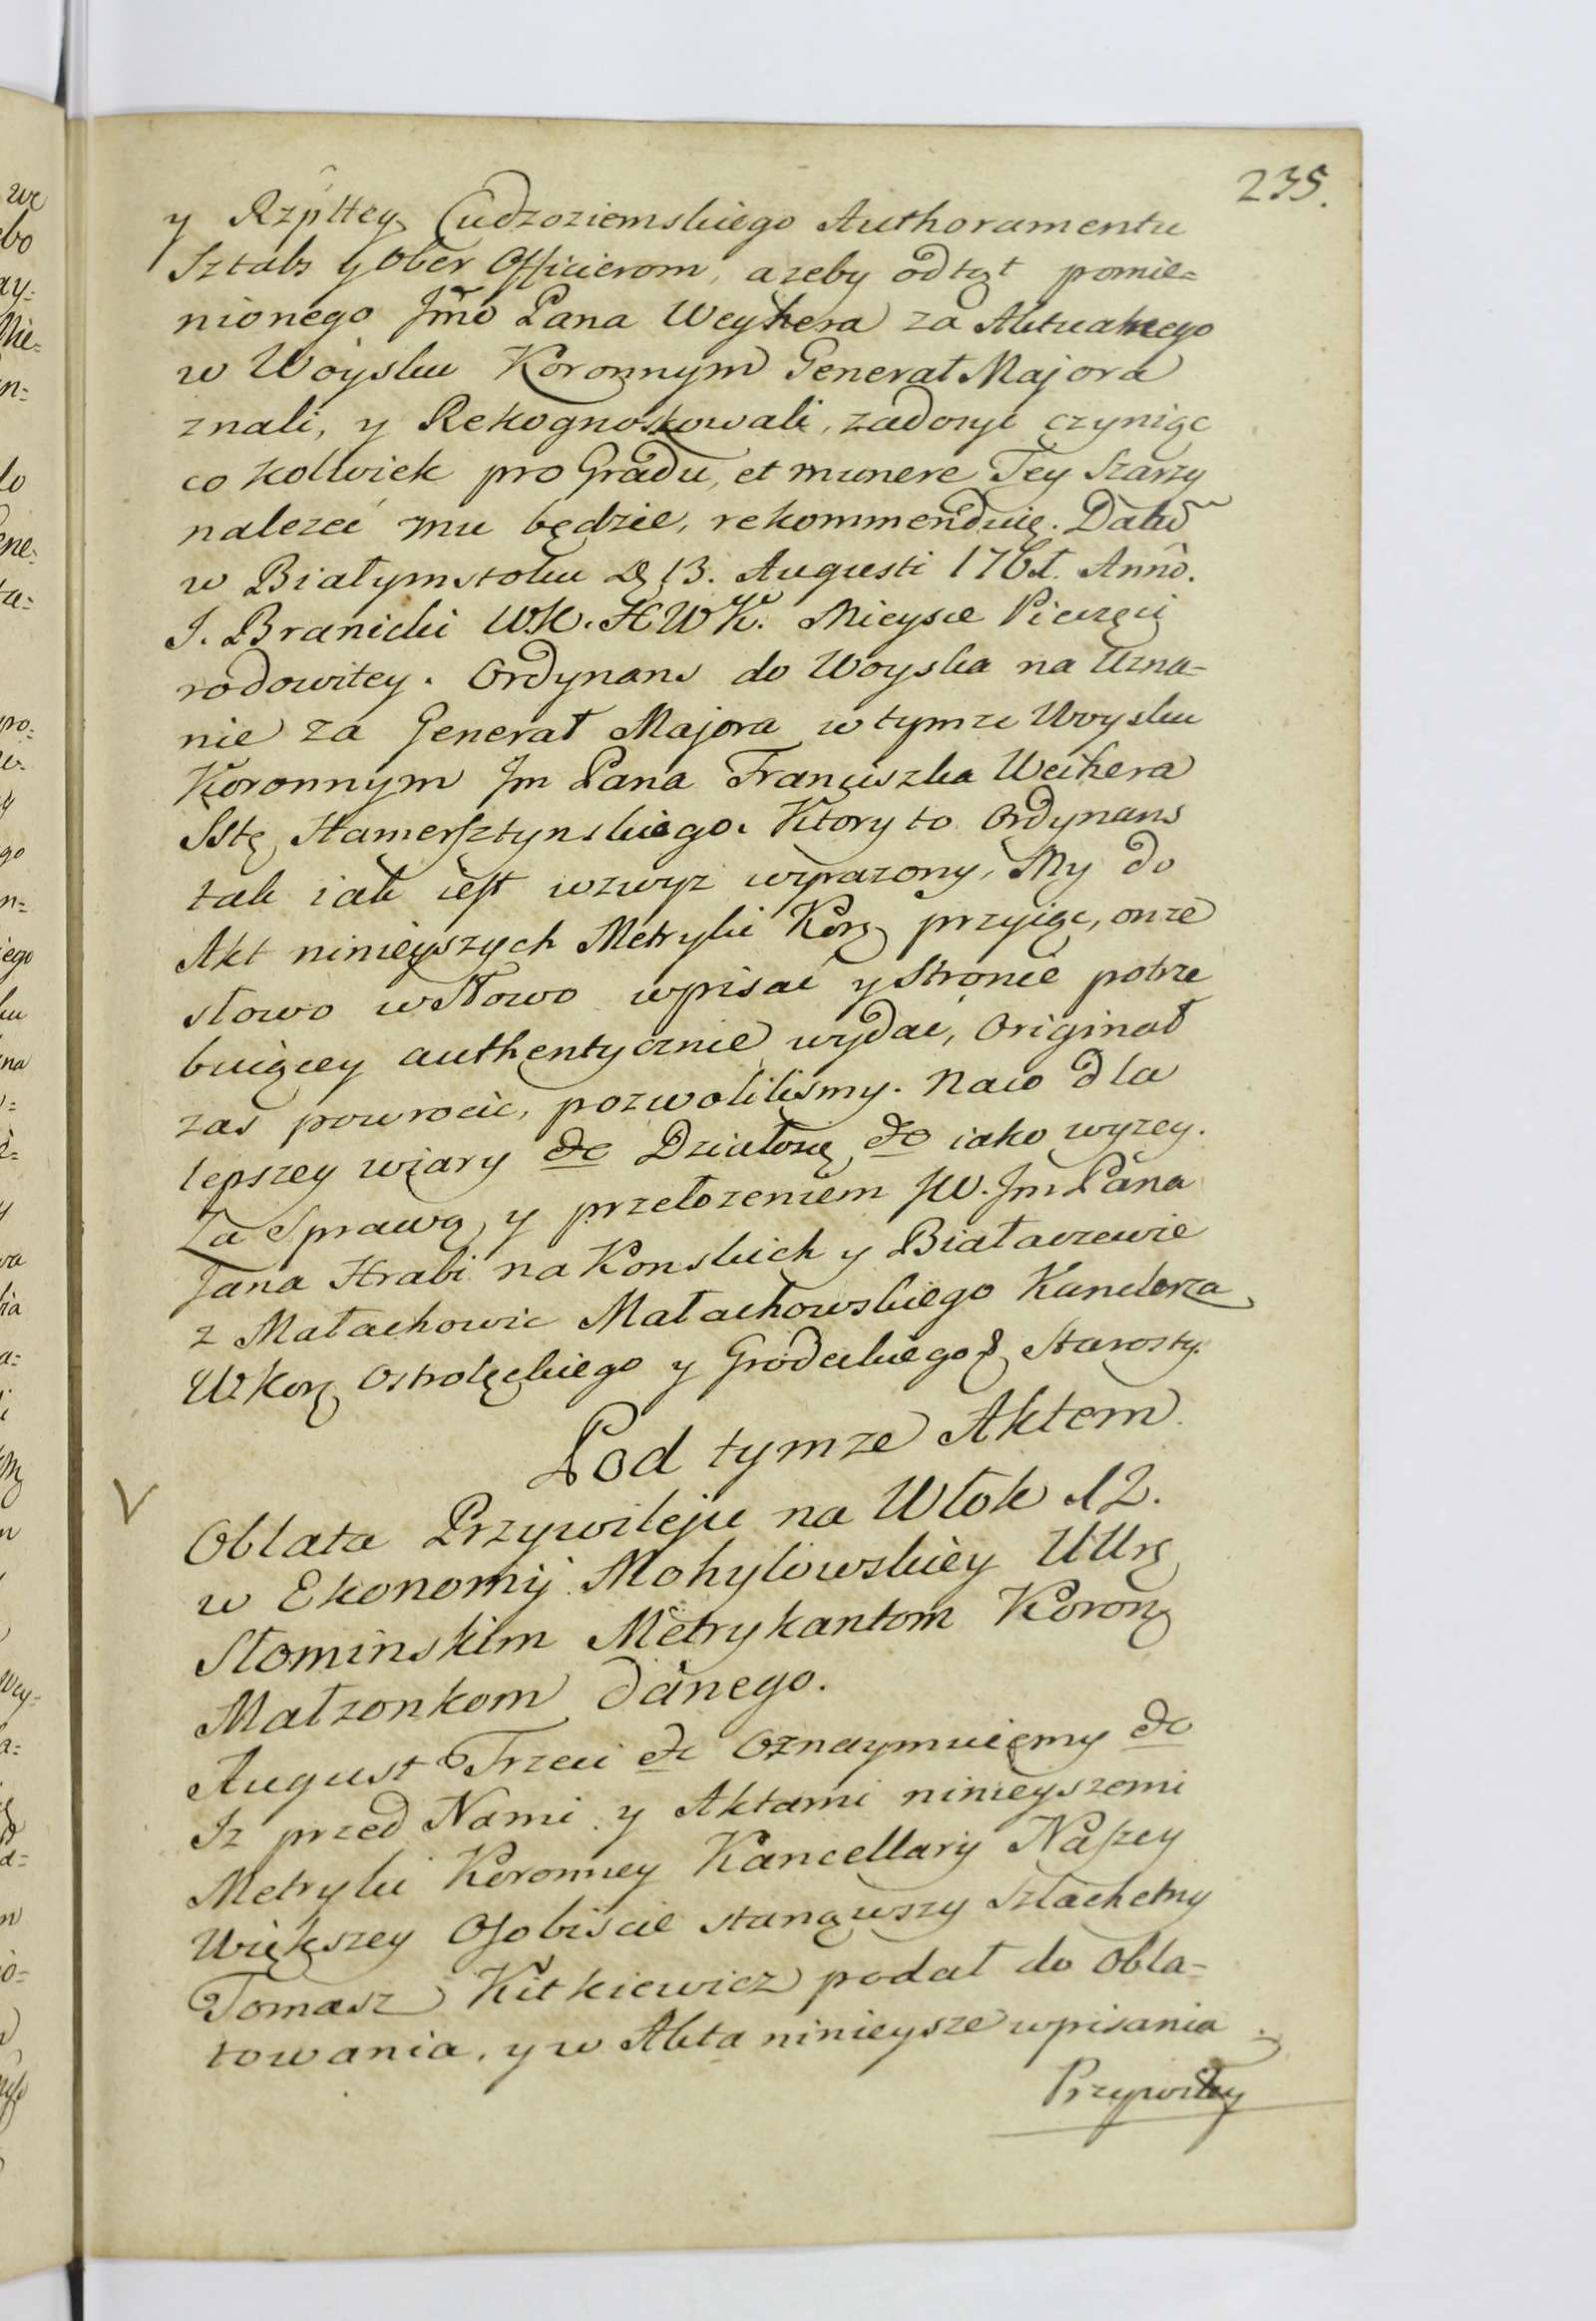 235.
y Rzpltey Cudzoziemskiego Authoramentu
Sztabs y Ober Officierom, azeby odtąt pomie=
nionego Jmo Pana Weyhera za Aktualnego
w Woysku Koronnym Generał Majora
znali, y Rekognoskowali, zadosyc czyniąc
co kolwiek pro Gradu, et munere Tey Szarzy
nalezeć mu będzie, rekommenduię. Datũ
w Białymstoku D. 13. Augusti 1761. Anno.
J. Branicki W.K. H W K. Mieysce Pieczęci
rodowitey. Ordynans do Woyska na Uzna-
nie za Generał Majora w tymze Woysku
Koronnym Jm Pana Franciszka Weihera
Sstę Hamersztynskiego. Ktory to Ordynans
tak iak iest wzwyz wyrazony, My do
Akt ninieyszych Metryki Kor: przyiąc, onze
słowo w słowo wpisać y Stronie potrze
buiącey authentycznie wydać, Originał
zaś powrocic, pozwolilismy. Naco dla
lepszey wiary &c Działosię &c iako wyzey.
Za Sprawą y przełozeniem JW. Jm Pana
Jana Hrabi na Konskich y Białaczewie
z Małachowic Małachowskiego Kanclerza
W Kor: Ostrołęckiego y Grodeckiego &. Starosty.
Pod tymze Aktem
V
Oblata Przywileju na Włok 12.
w Ekonomij Mohylowskiey UUr:
Słominskim Metrykantom Koron:
Małzonkom danego.
August Trzeci &c Oznaymuiemy &c
Iz przed Nami y Aktami ninieyszemi
Metryki Koronney Kancellaryi Naszey
Większey Osobiscie stanąwszy Szlachetny
Tomasz Kitkiewicz podał do Obla-
towania, y w Akta ninieysze wpisania
Przywiley